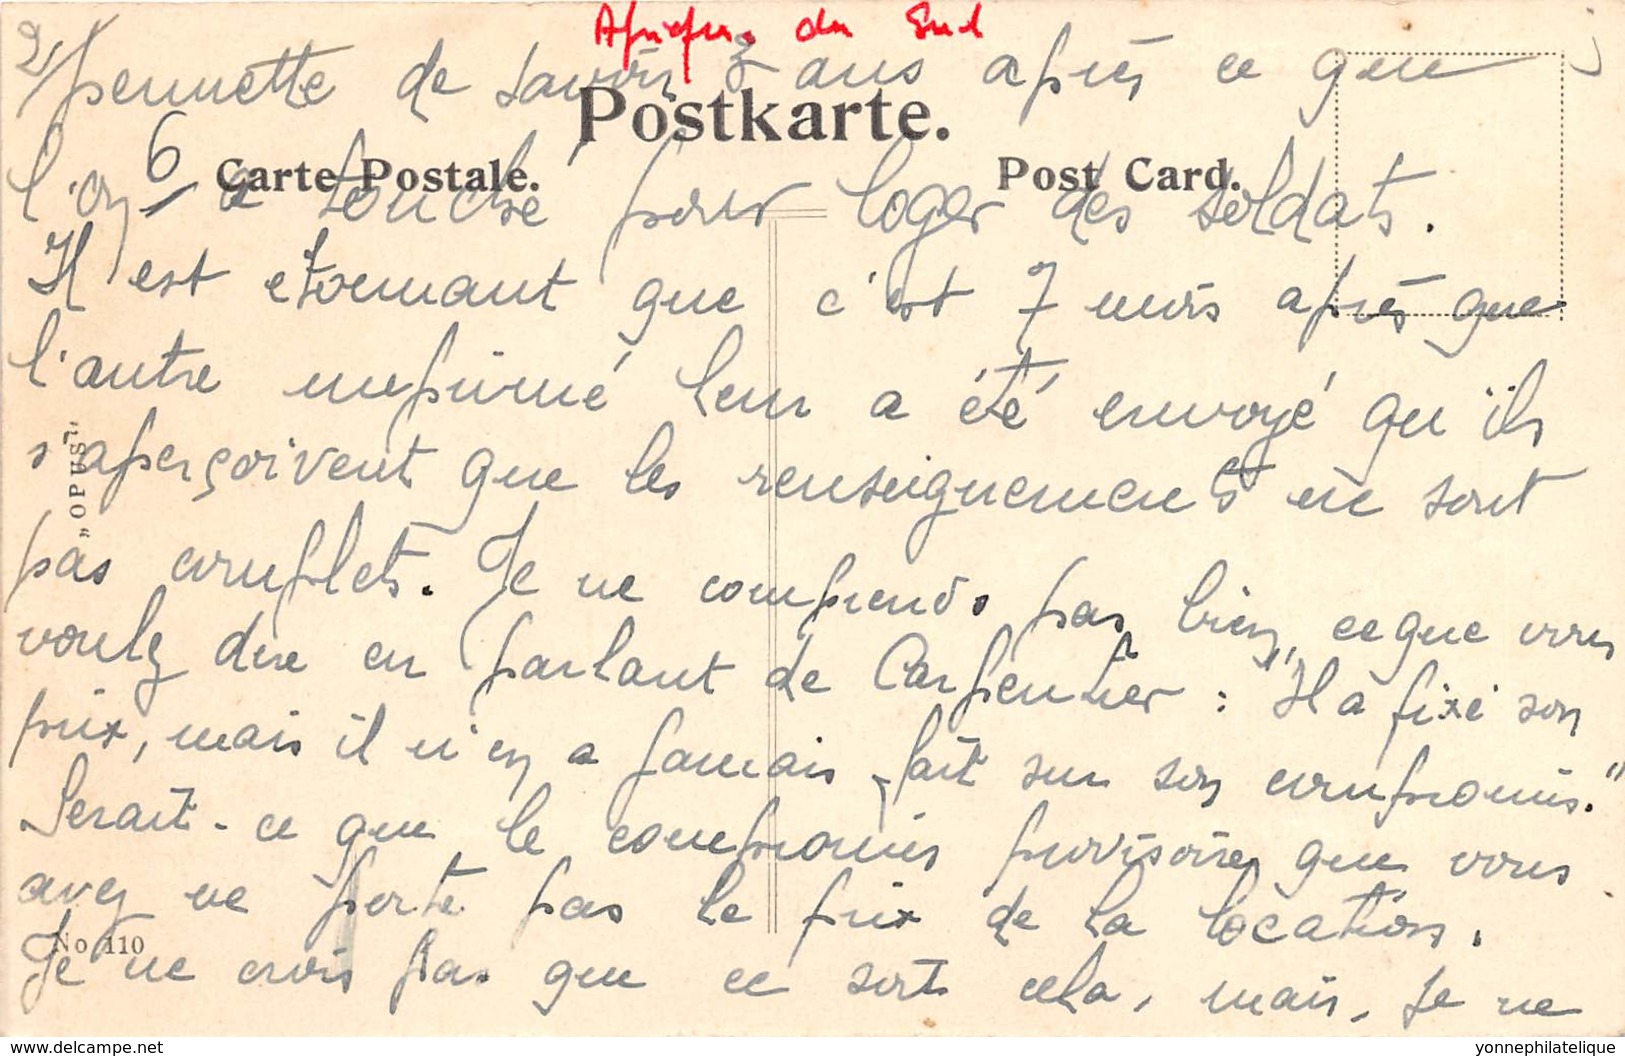 Afrique du Sud
2/ permette de savoir 3 ans après ce que
Postkarte.
6
Carte Postale. Post Card.
l'on a touché pour loger des soldats.
Il est etonnant que c'est 7 mois après que
l'autre imprimé leur a été envoyé qu'ils
s'aperçoivent que les renseignements ne sont
„OPUS"
pas complets. Je ne comprends pas bien, ce que vous
voulez dire en parlant de Carpentier : "Il a fixé son
prix, mais il n'en a jamais fait sur son compromis."
Serait-ce que le compromis provisoire que vous
avez ne porte pas le prix de la location.
No 110
Je ne crois pas que ce soit cela, mais, je ne
www.delcampe.net
yonnephilatelique